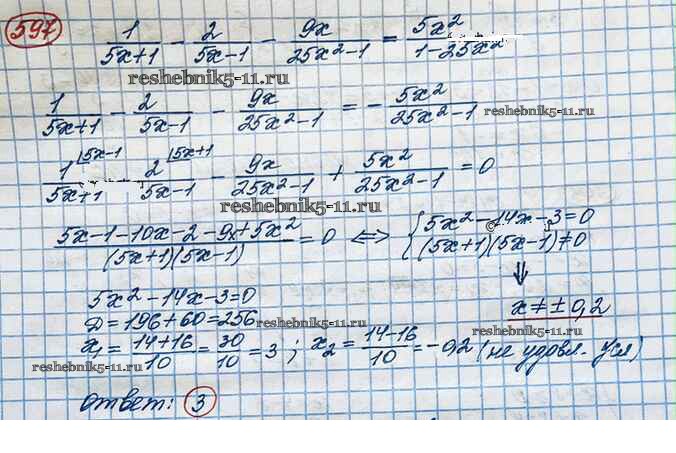 597
1/(5x+1) - 2/(5x-1) - 9x/(25x²-1) = 5x²/(1-25x²)
reshebnik5-11.ru
1/(5x+1) - 2/(5x-1) - 9x/(25x²-1) = - 5x²/(25x²-1)
reshebnik5-11.ru
1⌊5x-1/(5x+1) 2⌊5x+1/(5x-1) - 9x/(25x²-1) + 5x²/(25x²-1) = 0
reshebnik5-11.ru
(5x-1-10x-2-9x+5x²)/((5x+1)(5x-1)) = 0 ⟺ { 5x²-14x-3=0
(5x+1)(5x-1)≠0
⇓
5x²-14x-3=0
x≠±0,2
Д=196+60=256
reshebnik5-11.ru
x₁ = (14+16)/10 = 30/10 = 3 ; x₂ = (14-16)/10 = -0,2 (не удовл. усл)
reshebnik5-11.ru
reshebnik5-11.ru
ответ: 3